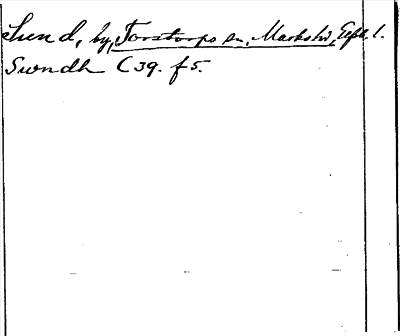 Lund, by, Torstorps sn, Marks hd, Elfsb. l.
Swndh C 39. f 5.